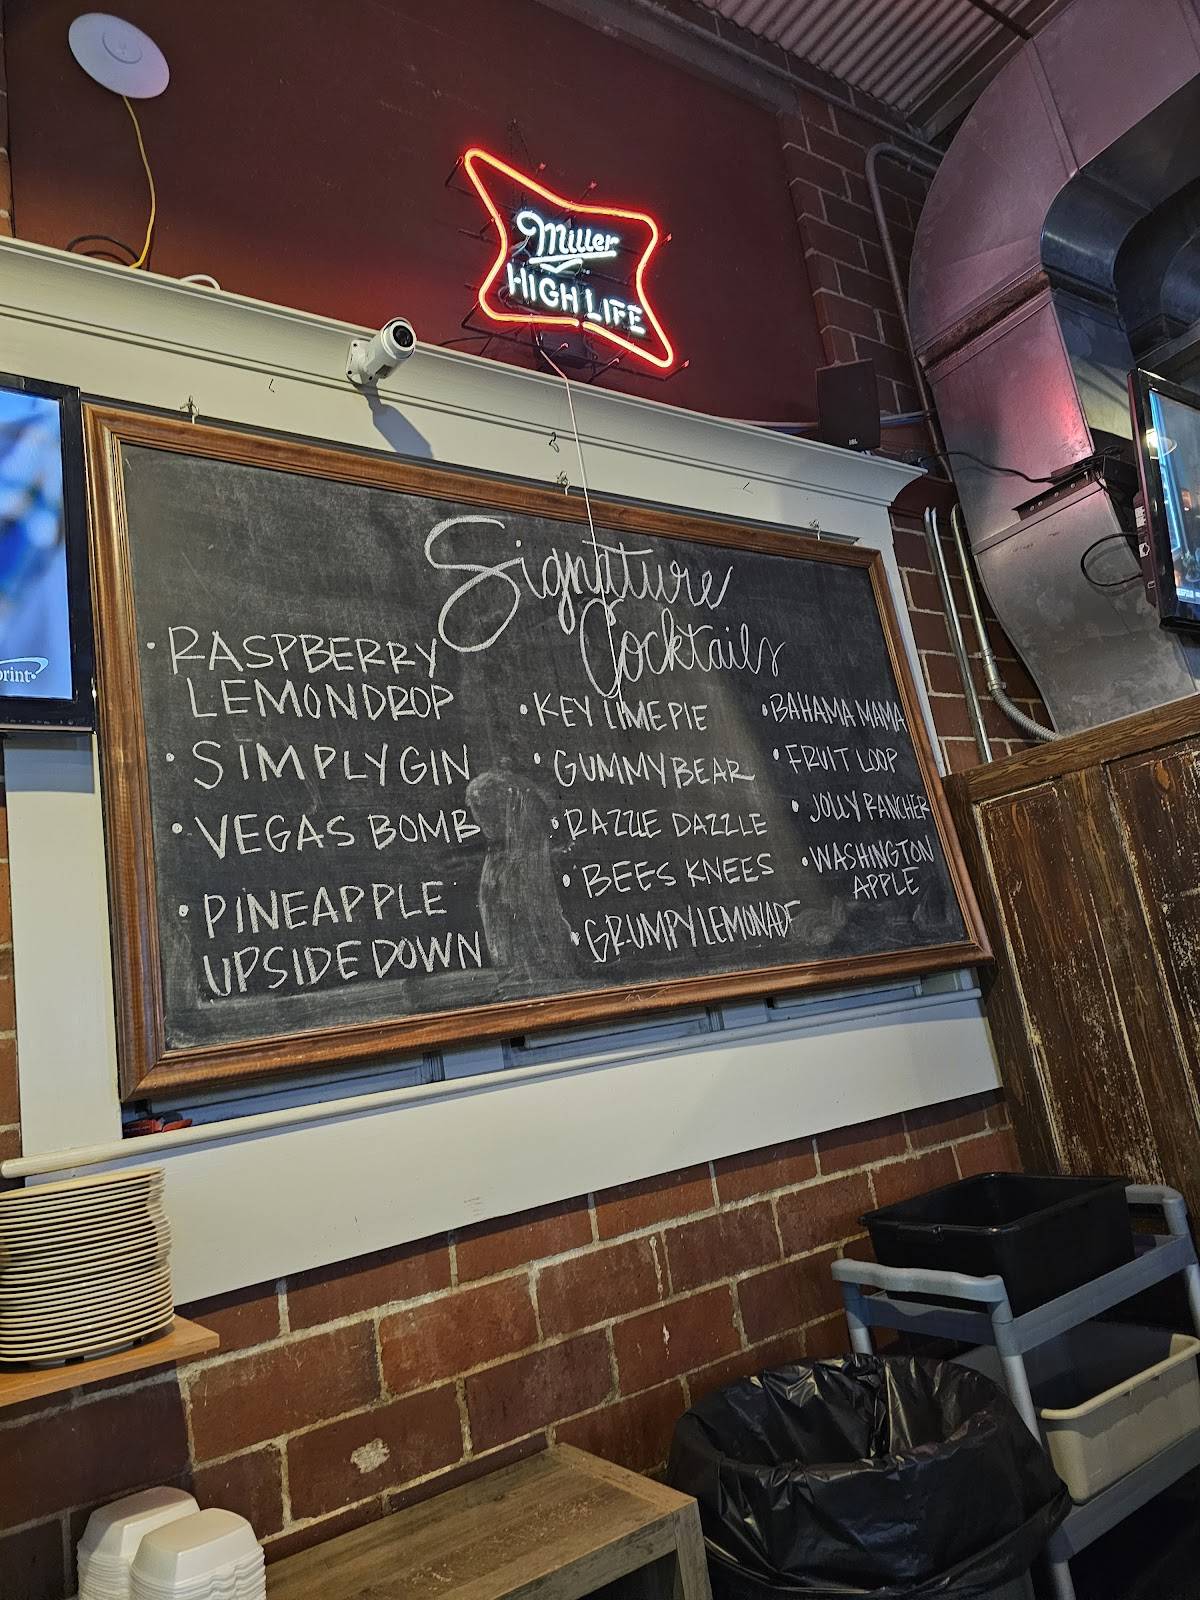 Miller
HIGH LIFE
Signature
Cocktails
• RASPBERRY
LEMONDROP
• SIMPLY GIN
• VEGAS BOMB
• PINEAPPLE
UPSIDE DOWN
• KEY LIME PIE
• GUMMY BEAR
• RAZZLE DAZZLE
• BEES KNEES
• GRUMPY LEMONADE
• BAHAMA MAMA
• FRUIT LOOP
• JOLLY RANCHER
• WASHINGTON
APPLE
rint
JBL